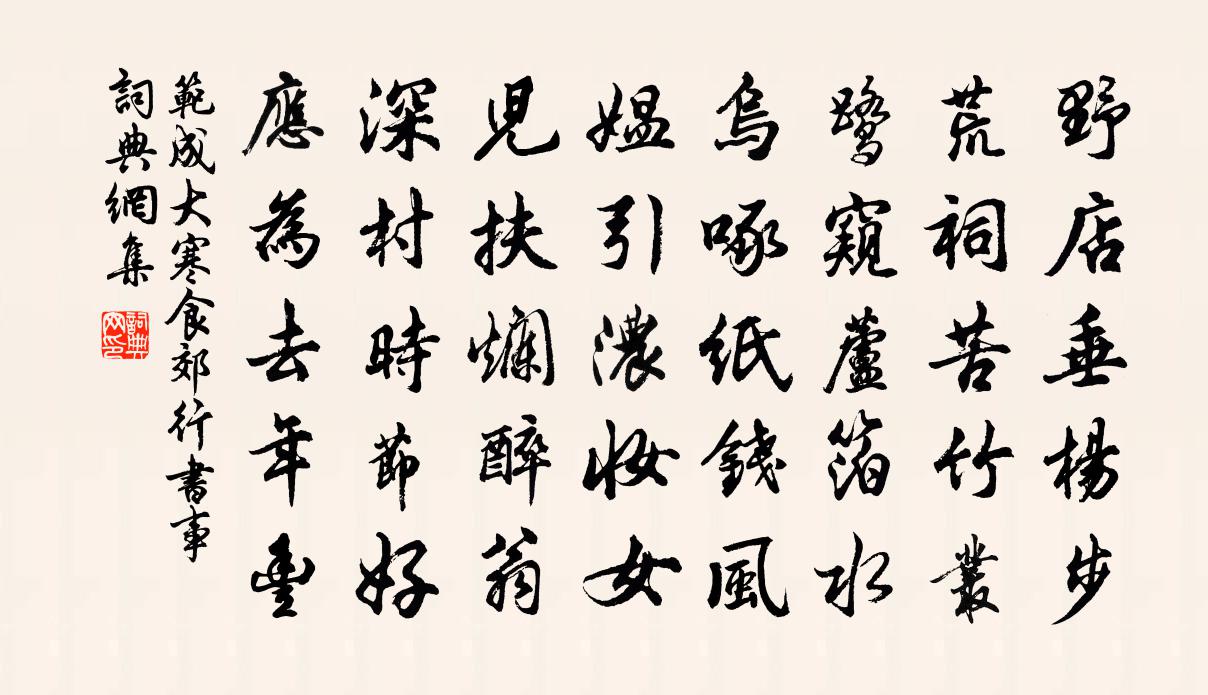 野店垂楊步
荒祠苦竹叢
鷺窺蘆箔水
烏啄紙錢風
媼引濃妝女
兒扶爛醉翁
深村時節好
應為去年豐
範成大寒食郊行書事
詞典網集
詞典
网印